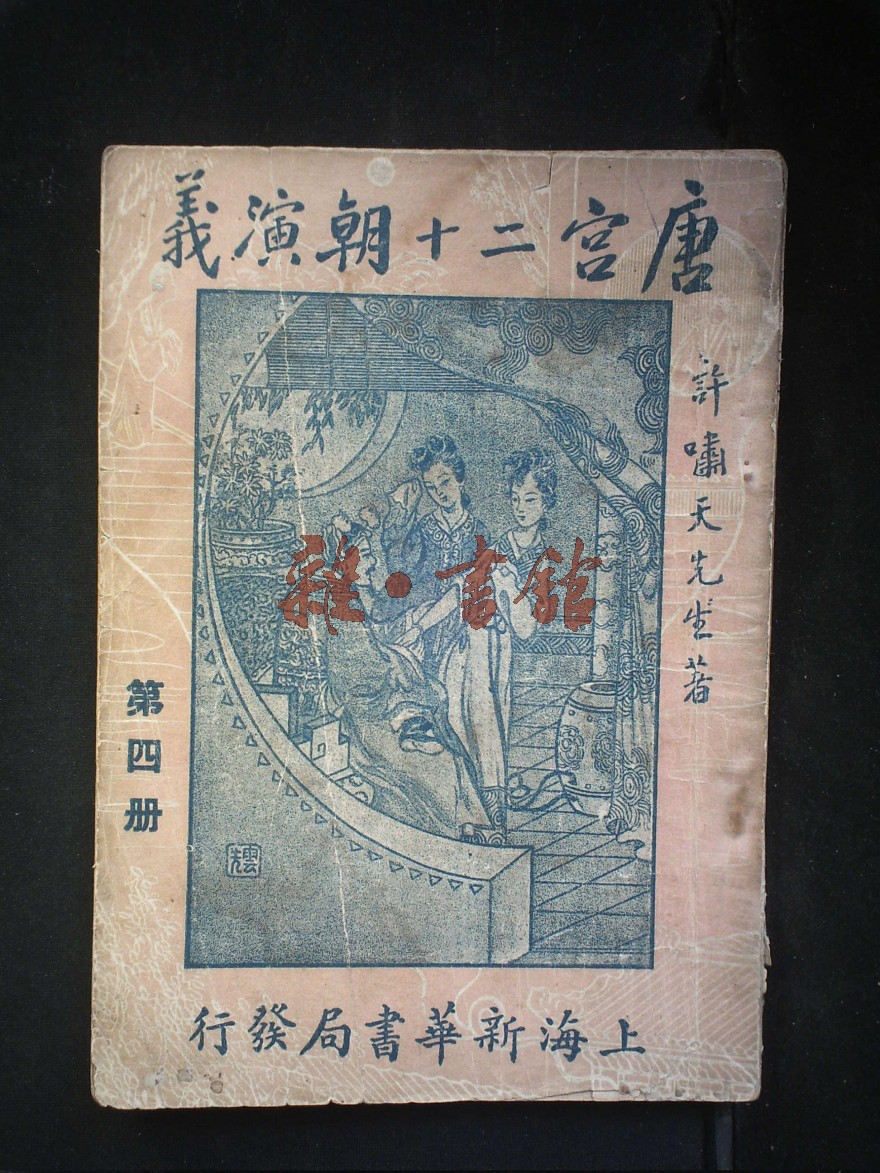 唐宮二十朝演義
許嘯天先生著
第四册
雜·書館
上海新華書局發行